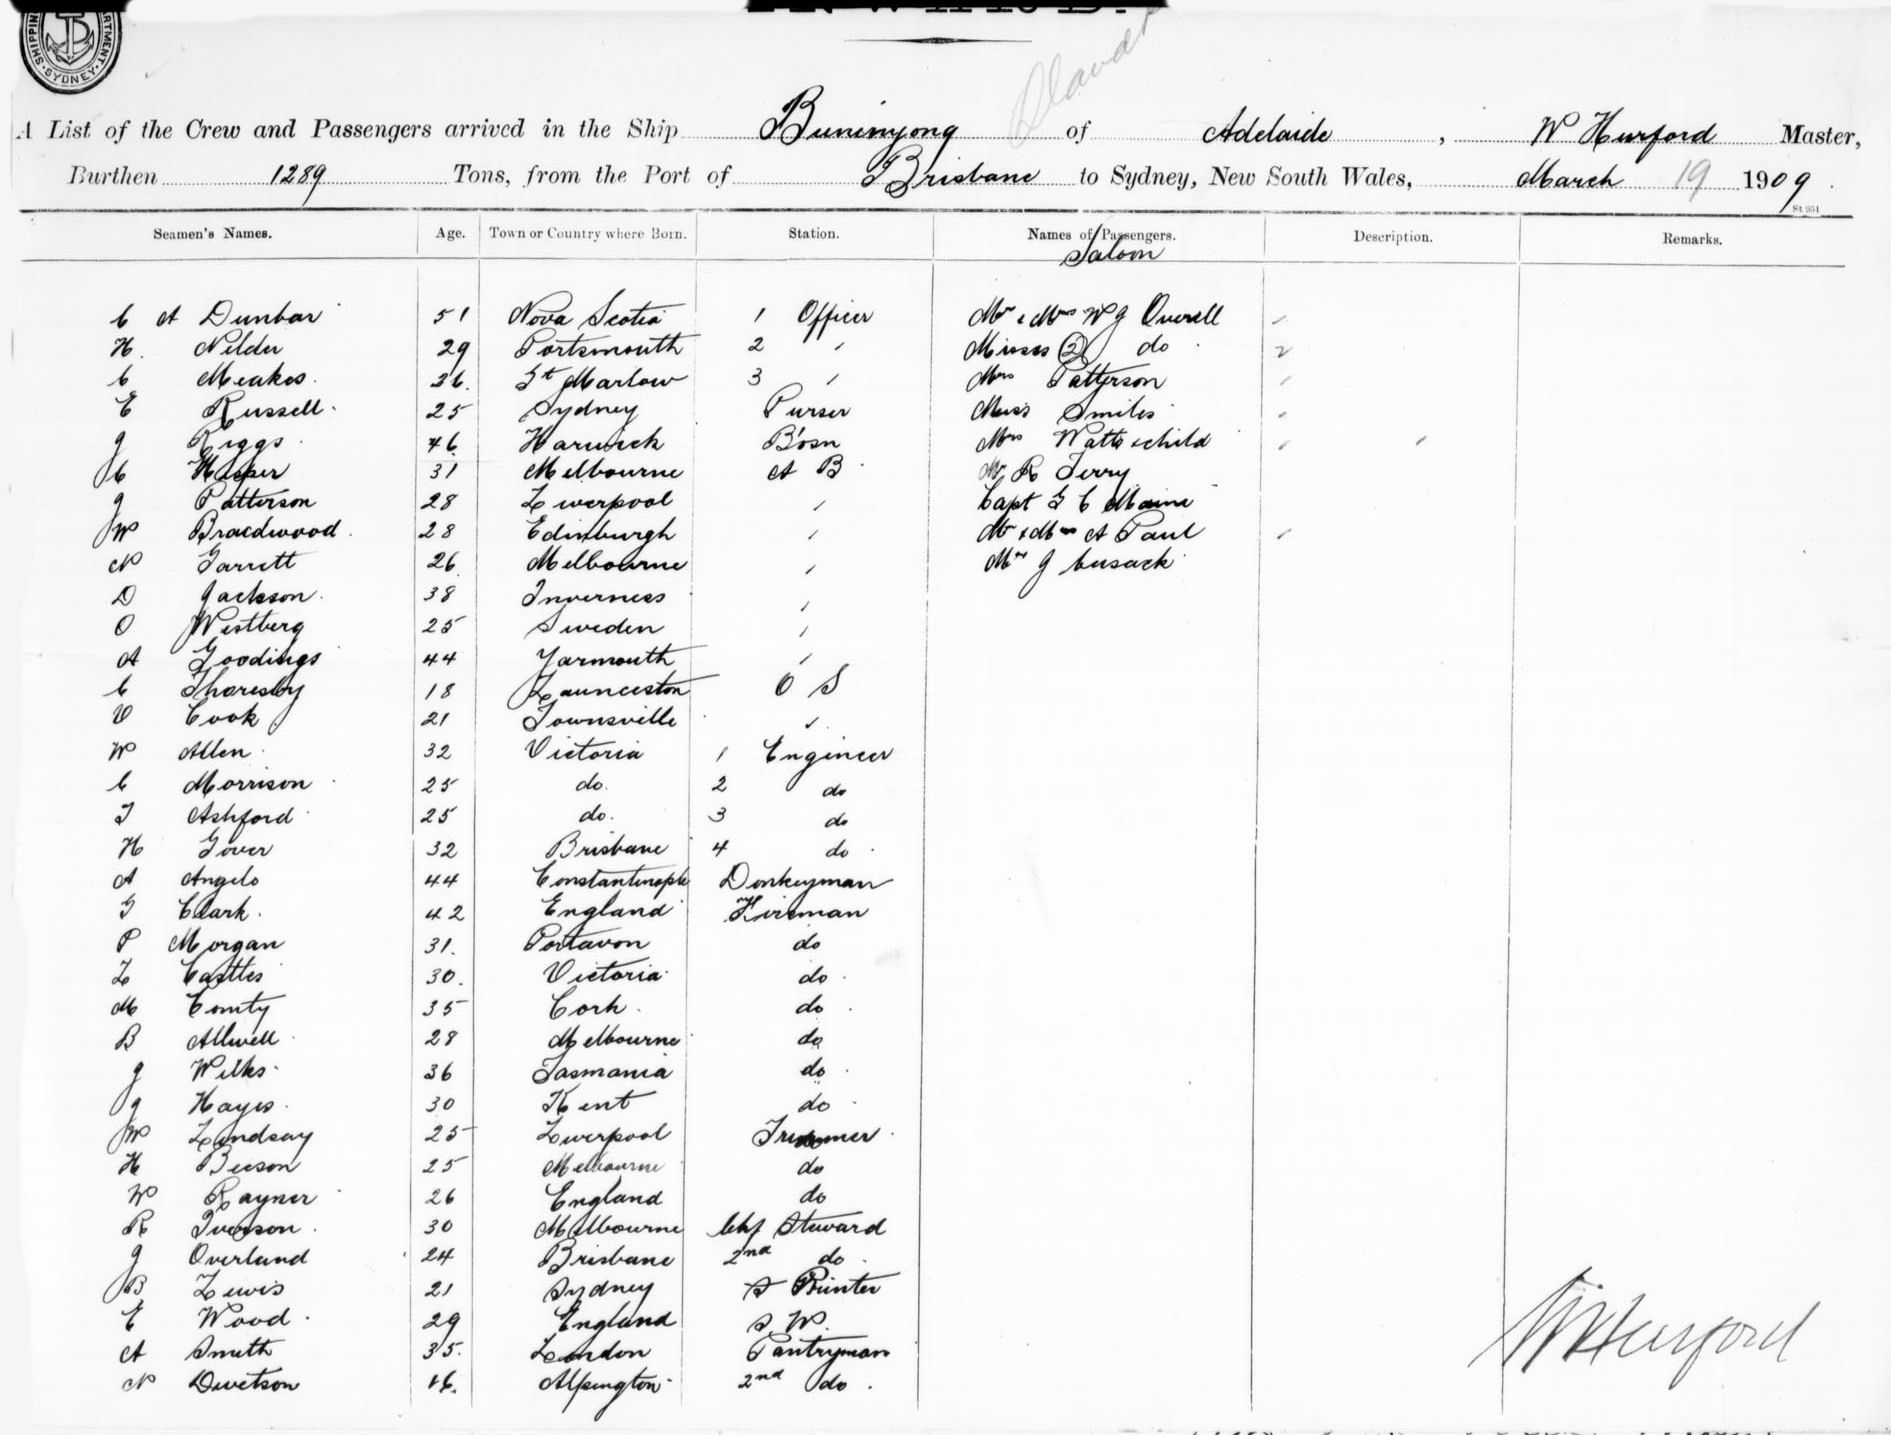 SHIPPING DEPARTMENT SYDNEY
A List of the Crew and Passengers arrived in the Ship Buninyong of Adelaide, W Hurford Master,
Burthen 1289 Tons, from the Port of Brisbane to Sydney, New South Wales, March 19 1909.
St 951
Seamen's Names. Age. Town or Country where Born. Station. Names of Passengers. Description. Remarks.
Saloon
C A Dunbar 51 Nova Scotia 1 Officer Mr & Mrs W J Overell
H. Nelder 29 Portsmouth 2 " Misses (2) do 2
C Meakes 36. Gt Marlow 3 " Mrs Patterson
E Russell 25 Sydney Purser Miss Smiles
J Riggs 46 Harwich Bosn Mrs Watts & child
C Hesper 31 Melbourne A B Mr R Terry
J Patterson 28 Liverpool " Capt G C Maine
W Braedwood 28 Edinburgh " Mr & Mrs A Paul
N Garrett 26 Melbourne " Mrs J Cusack
D Jackson 38 Inverness "
O Westberg 25 Sweden "
A Goodings 44 Yarmouth "
C Thoresby 18 Launceston O S
V Cook 21 Townsville "
W Allen 32 Victoria 1 Engineer
C Morrison 25 do. 2 do
T Ashford 25 do. 3 do
H Gover 32 Brisbane 4 do
A Angelo 44 Constantinople Donkeyman
G Clark 42 England Fireman
P Morgan 31. Portavon do
L Castles 30. Victoria do
M Comty 35 Cork do
B Allwell 28 Melbourne do
J Wilks 36 Tasmania do
J Hayes 30 Kent do
W Lindsay 25 Liverpool Trimmer
H Beeson 25 Melbourne do
W Rayner 26 England do
R Iverson 30 Melbourne Chf Steward
J Overlund 24 Brisbane 2nd do
B Lewis 21 Sydney S Printer
E Wood 29 England S W.
A Smith 35. London Pantryman
N Divetson 16. Alpington 2nd do
W Hurford